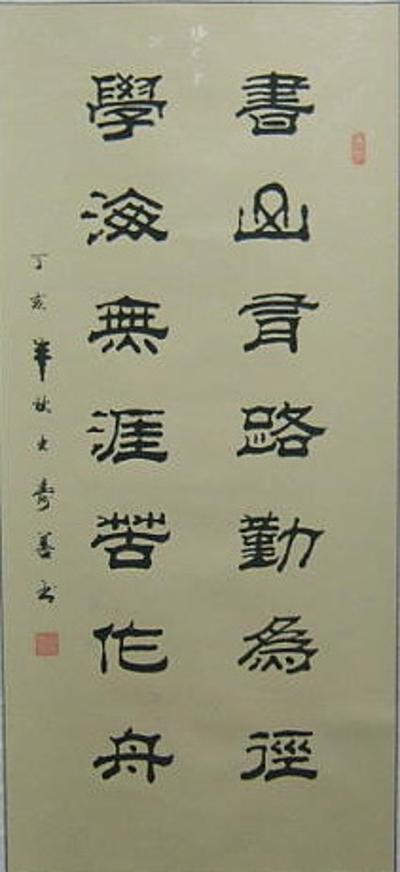 書山有路勤為徑
學海無涯苦作舟
丁亥年秋